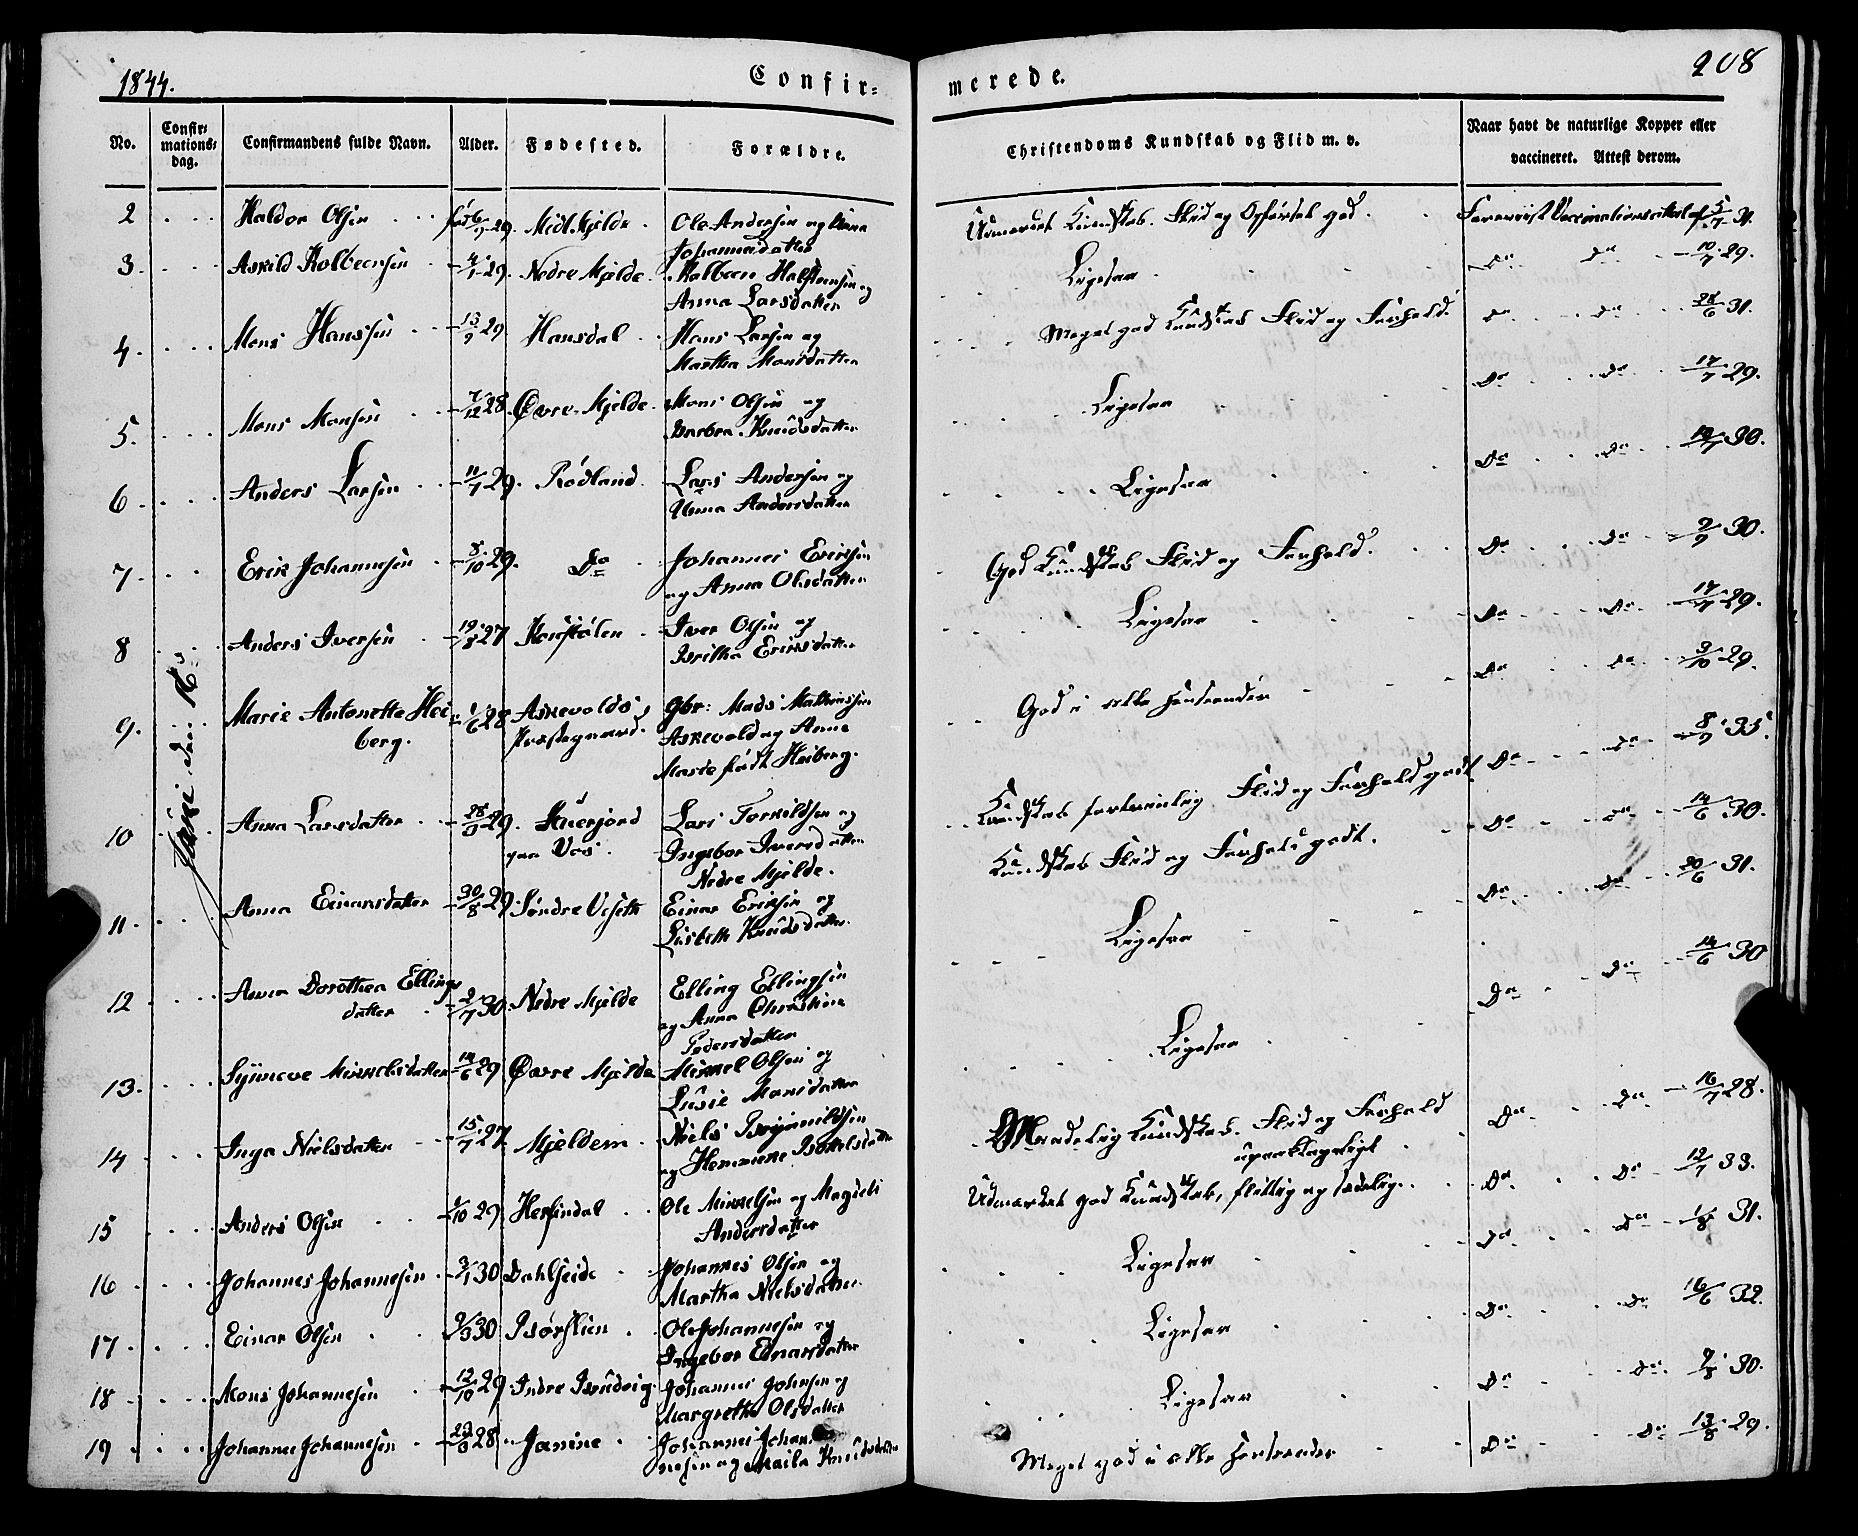 1844.
Confir-
merede.
208
No.
Confir-
mations-
dag.
Confirmandens fulde Navn.
Alder.
Fødested.
Forældre.
Christendoms Kundskab og Flid m. v.
Naar havt de naturlige Kopper eller
vaccineret. Attest derom.
Juni den 16de
2 Haldor Olsen født 6/7 29 Midt Mjelde Ole Andersen og Anna
Johannesdatter
Udmærket Kundskab. Flid og Opførsel god. Foreviist Vaccinationsattest af 5/7 31.
3 Askild Kolbeensen 4/1 29 Nedre Mjelde Kolbeen Halsteensen og
Anna Larsdatter
Ligesaa Do Do 10/7 29.
4 Mons Hanssen 13/9 29 Hansdal Hans Larsen og
Martha Monsdatter
Meget god Kundskab Flid og Forhold. Do Do 28/6 31.
5 Mons Monsen 7/12 28 Øvre Mjelde Mons Olsen og
Barbra Knudsdatter
Ligesaa Do Do 17/7 29.
6 Anders Larsen 11/7 29 Rødland Lars Andersen og
Anna Andersdatter
Ligesaa Do Do 30.
7 Erik Johannesen 8/10 29 Do Johannes Ericksen
og Anna Olsdatter
God Kundskab Flid og Forhold. Do Do 2/9 30.
8 Anders Iversen 19/8 27 Iver Olsen og
Britha Eriksdatter
Ligesaa Do Do 17/7 29.
9 Marie Antonette Hei-
berg. 1/6 28 Askevolds
Præstegaard. Gbr: Mads Mathiessen
Askevold og Anne
Marie født Heiberg.
God i alle Henseender Do Do 3/10 29.
10 Anna Larsdatter 28/9 29 Skuerjord
paa Vos. Lars Torkildsen og
Ingebor Iversdatter
Nedre Mjelde.
Kundskab fortrinlig Flid og Forhold godt Do Do 8/9 35.
Kundskab Flid og Forhold godt. Do Do 14/6 30.
11 Anna Einarsdatter 30/8 29 Søndre Viseth Einar Ericksen og
Lisbeth Knudsdatter
Ligesaa Do Do 20/6 31.
12 Anna Dorothea Ellings
datter 2/7 30 Nedre Mjelde Elling Ellingsen
og Anna Christina
Pedersdatter
Ligesaa Do Do 14/6 30
13 Synneve Mikkelsdatter 14/6 29 Øvre Mjelde Mikkel Olsen og
Lusie Monsdatter
14 Inga Nielsdatter 15/7 27 Mjeldem Niels Brynnildsen
og
Maadelig Kundskab. Flid og Forhold
upaaklageligt Do Do 16/7 28.
15 Anders Olsen 1/10 29 Herfindal Ole Mikkelsen og Magdeli
Andersdatter
Udmærket god Kundskab, flittig og sædelig. Do Do 12/7 33.
16 Johannes Johannesen 3/1 30 Dahlseide Johannes Olsen og
Martha Nielsdatter
Ligesaa Do Do 1/8 31.
17 Einar Olsen 9/3 30 Børslien Ole Johannesen og
Ingebor Einarsdatter
Ligesaa Do Do 16/6 32.
18 Mons Johannesen 12/10 29 Indre Bruvig Johannes Johnsen og
Margrethe Olsdatter
Ligesaa Do Do 9/8 30.
19 Johannes Johannesen 28 Janine Johannes Johan-
nesen og Maila Knudsdatter
Meget god i alle Henseender Do Do 13/8 29.